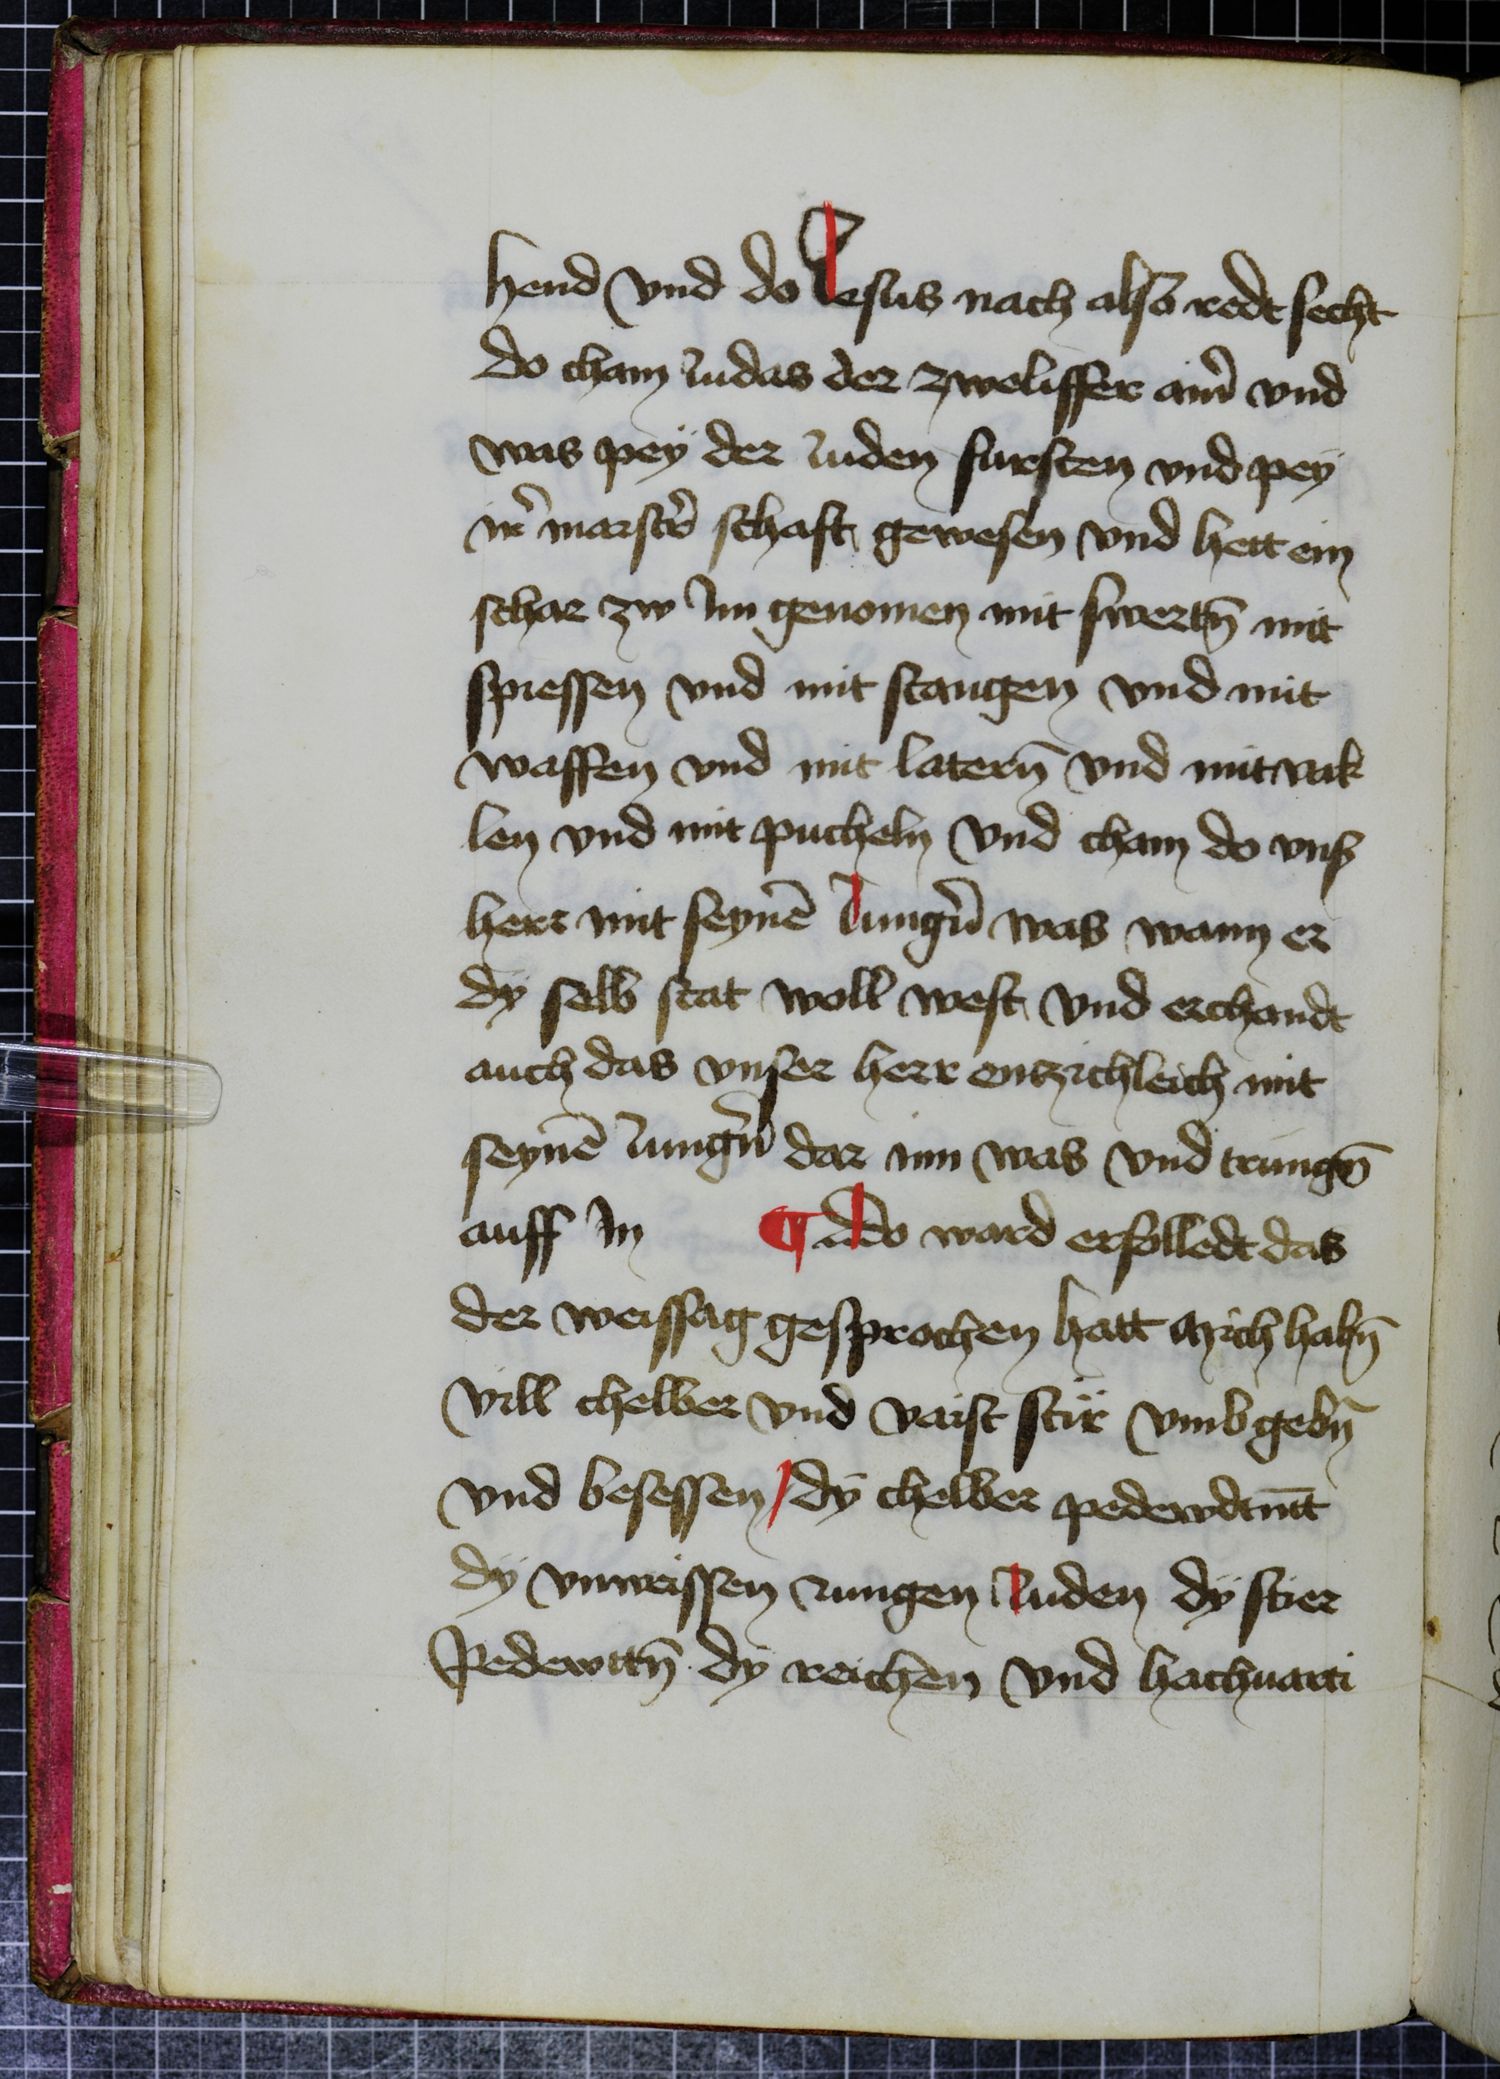 hend vnd do Iesus nach also redt secht
do cham Iudas der zweliffer ainr̄ vnd
was pey der Iuden fursten vnd pey
ir̄ maistr̄schaft gewesen vnd hett ein
schar zw Im genomen mit swertn̄ mit
spiessen vnd mit stangen vnd mit
waffen vnd mit latern̄ vnd mit vak
len vnd mit pucheln vnd cham do vnſ
herr mit seynē Iungrn̄ was wann er
dy selb stat woll west vnd erchandt
auch das vnser herr entzichleich mit
seynē Iungrn̄ dar inn was vnd trungn̄
auff In ¶ Aldo ward erfolledt das
der weissag gesprochen hatt Mich habn̄
vill chelber vnd vaist stir vmbgebn̄
vnd besessen / dy chelber pedewdtntt
dy vnweissen iungen Iuden dy stier
Pedewttn̄ dy reichen vnd hachuarti